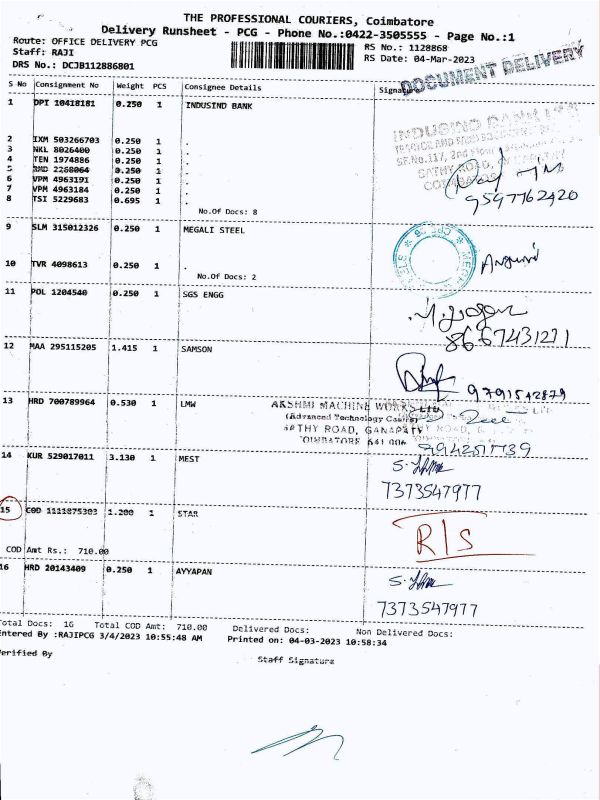 THE PROFESSIONAL COURIERS, Coimbatore
Delivery Runsheet - PCG - Phone No.:0422-3505555 - Page No.:1
Route: OFFICE DELIVERY PCG RS No.: 1128868
Staff: RAJI RS Date: 04-Mar-2023
DRS No.: DCJB112886801
DOCUMENT DELIVERY
S No Consignment No Weight PCS Consignee Details Signature
1 DPI 10418181 0.250 1 INDUSIND BANK
2 IXM 503266703 0.250 1 .
3 NKL 8026400 0.250 1 .
4 TEN 1974886 0.250 1 .
5 RMD 2268064 0.250 1 .
6 VPM 4963191 0.250 1 .
7 VPM 4963184 0.250 1 .
8 TSI 5229683 0.695 1 .
9597762420
No.Of Docs: 8
9 SLM 315012326 0.250 1 MEGALI STEEL
10 TVR 4098613 0.250 1 .
No.Of Docs: 2
11 POL 1204540 0.250 1 SGS ENGG
8667431271
12 MAA 295115205 1.415 1 SAMSON
9791542879
13 HRD 700789964 0.530 1 LMW
AKSHMI MACHINE WORKS LTD
(Advanced Technology Centre)
SATHY ROAD, GANAPATY
COIMBATORE 641 006
14 KUR 529017011 3.130 1 MEST
7373547977
15 COD 1111875303 1.200 1 STAR
R/S
COD Amt Rs.: 710.00
16 HRD 20143409 0.250 1 AYYAPAN
7373547977
Total Docs: 16 Total COD Amt: 710.00 Delivered Docs: Non Delivered Docs:
Entered By :RAJIPCG 3/4/2023 10:55:48 AM Printed on: 04-03-2023 10:58:34
Verified By
Staff Signature